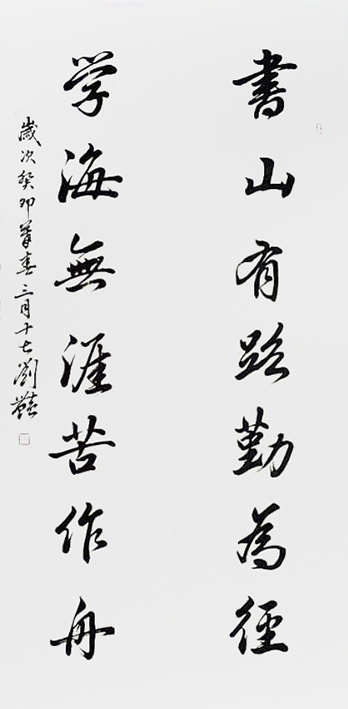 書山有路勤為徑
学海無涯苦作舟
歲次癸卯暮春三月十七劉